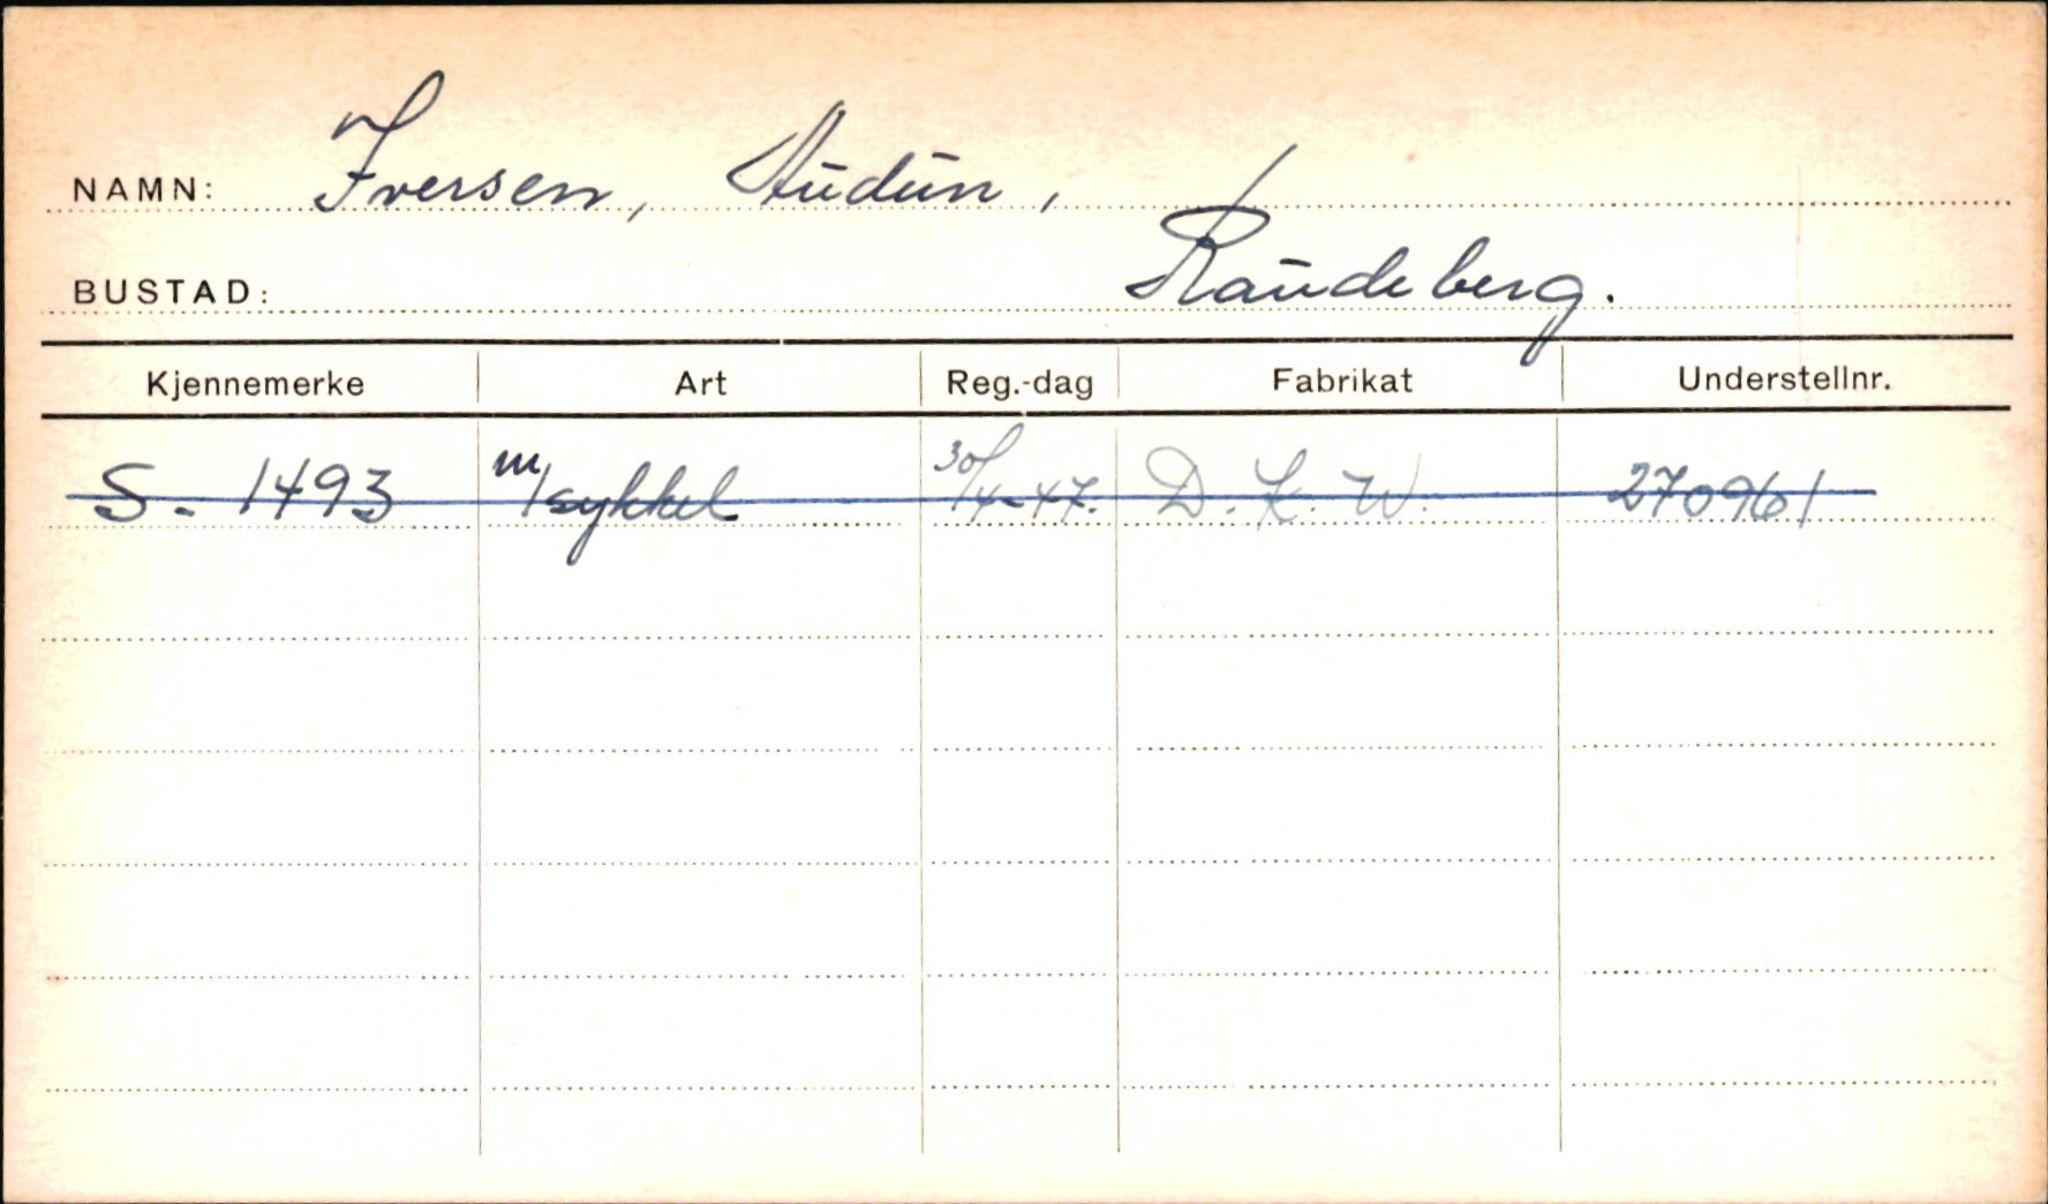 NAMN: Iversen, Audun,
BUSTAD: Raudeberg.
Kjennemerke Art Reg.-dag Fabrikat Understellnr.
S. 1493 m/sykkel 30/4-47. D.K.W. 270961